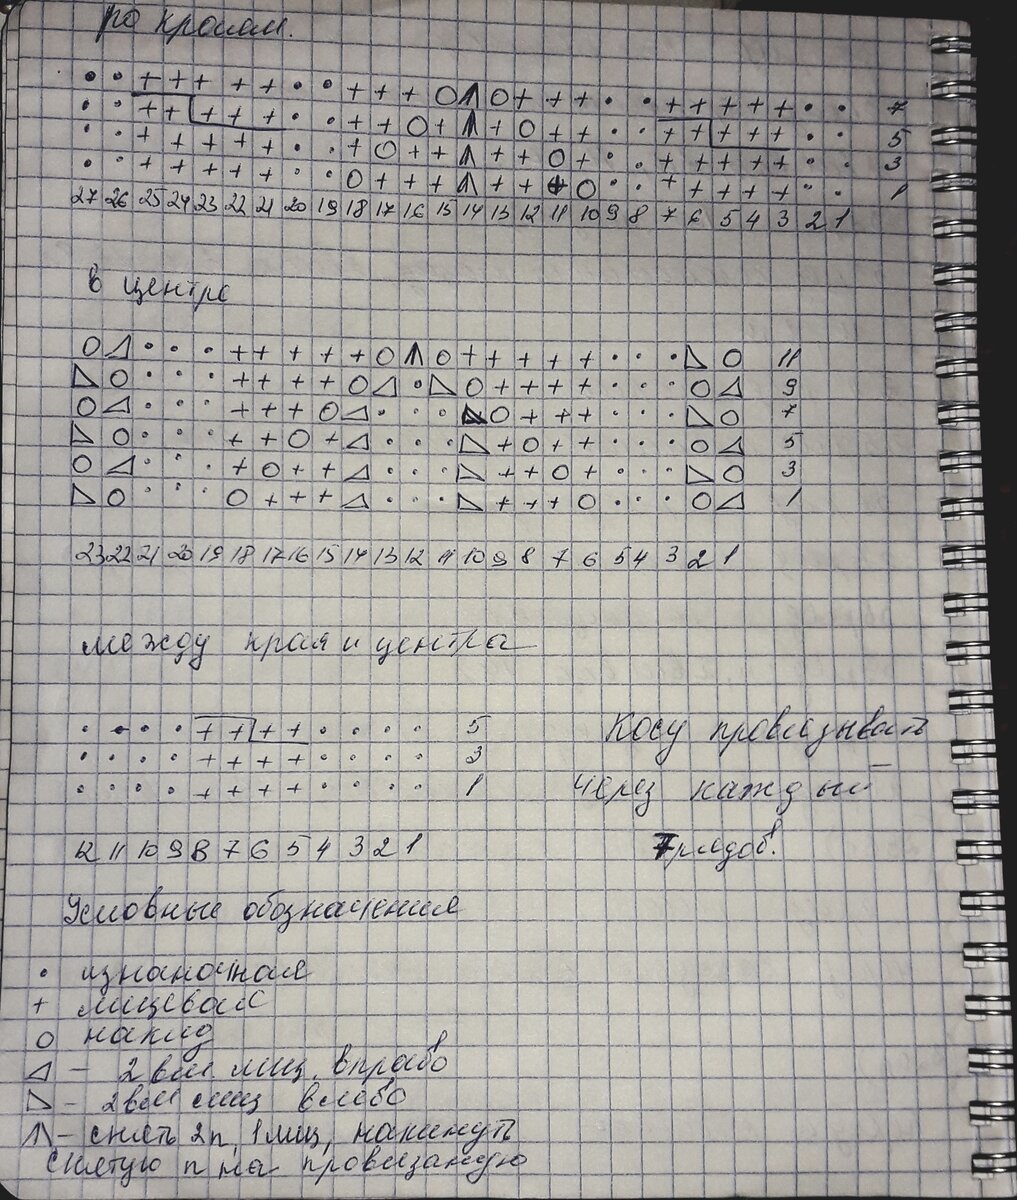 по краям.
• • + + + + + • • + + + O ⋀ O + + + + • • + + + + + • • 7
• • + + + + + • • + + O + ⋀ + O + + • • + + + + + • • 5
• • + + + + + • • + O + + ⋀ + + O + • • + + + + + • • 3
• • + + + + + • • O + + + ⋀ + + + O • • + + + + + • • 1
27 26 25 24 23 22 21 20 19 18 17 16 15 14 13 12 11 10 9 8 7 6 5 4 3 2 1
в центре
O ◿ • • • + + + + + O ⋀ O + + + + + • • • ◺ O 11
◺ O • • • + + + + O ◿ • ◺ O + + + + • • • O ◿ 9
O ◿ • • • + + + O ◿ • • • ◺ O + + + • • • ◺ O 7
◺ O • • • + + O + ◿ • • • ◺ + O + + • • • O ◿ 5
O ◿ • • • + O + + ◿ • • • ◺ + + O + • • • ◺ O 3
◺ O • • • O + + + ◿ • • • ◺ + + + O • • • O ◿ 1
23 22 21 20 19 18 17 16 15 14 13 12 11 10 9 8 7 6 5 4 3 2 1
между края и центра
• • • • + + + + • • • • 5
• • • • + + + + • • • • 3
• • • • + + + + • • • • 1
12 11 10 9 8 7 6 5 4 3 2 1
Косу провязывать
через каждый
7 рядов.
Условные обозначения
• изнаночная
+ лицевая
O накид
◿ – 2 вм лиц вправо
◺ – 2 вм лиц влево
⋀ – снять 2п, 1 лиц, накинуть
снятую п на провязаную